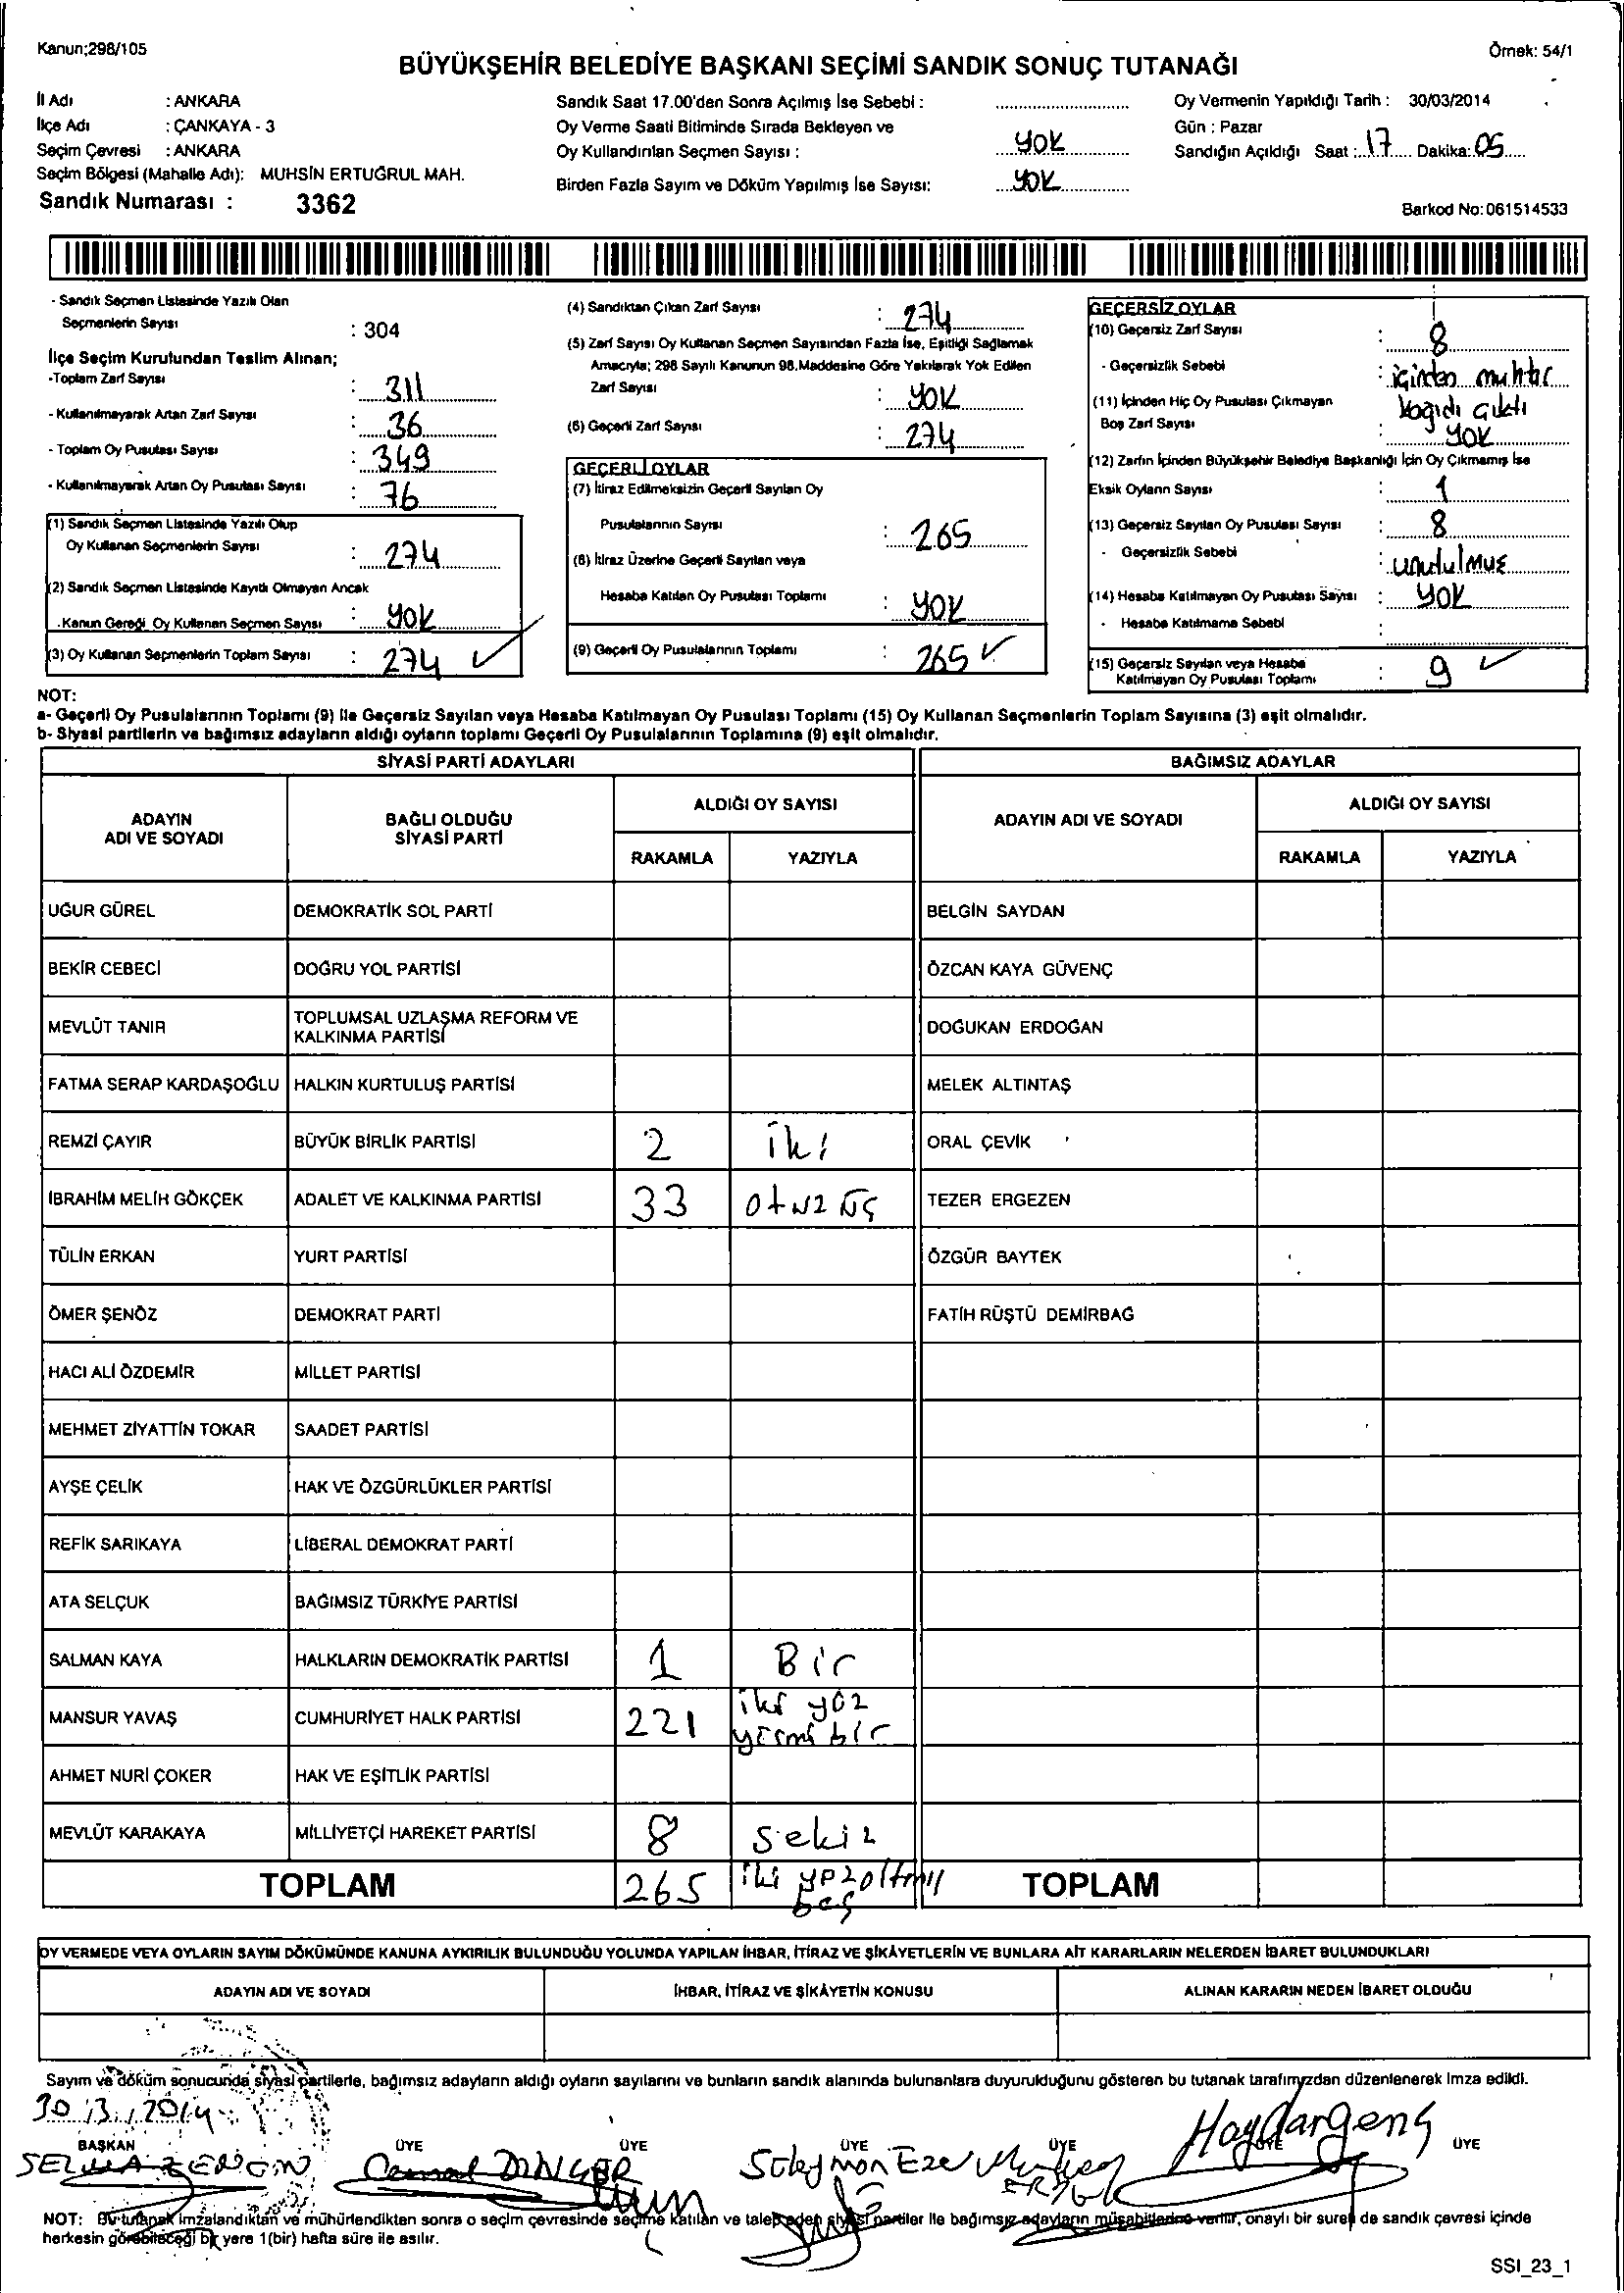 Kanun;298/105
Örnek: 54/1
BÜYÜKŞEHİR BELEDİYE BAŞKANI SEÇİMİ SANDIK SONUÇ TUTANAĞI
İl Adı : ANKARA
İlçe Adı : ÇANKAYA - 3
Seçim Çevresi : ANKARA
Seçim Bölgesi (Mahalle Adı): MUHSİN ERTUĞRUL MAH.
Sandık Numarası : 3362
Sandık Saat 17.00'den Sonra Açılmış İse Sebebi :
Oy Verme Saati Bitiminde Sırada Bekleyen ve
Oy Kullandırılan Seçmen Sayısı : YOK
Birden Fazla Sayım ve Döküm Yapılmış İse Sayısı: YOK
Oy Vermenin Yapıldığı Tarih : 30/03/2014
Gün : Pazar
Sandığın Açıldığı Saat : 17 Dakika: 05
Barkod No:061514533
- Sandık Seçmen Listesinde Yazılı Olan
Seçmenlerin Sayısı : 304
İlçe Seçim Kurulundan Teslim Alınan;
-Toplam Zarf Sayısı : 311
- Kullanılmayarak Artan Zarf Sayısı : 36
- Toplam Oy Pusulası Sayısı : 349
- Kullanılmayarak Artan Oy Pusulası Sayısı : 76
(1) Sandık Seçmen Listesinde Yazılı Olup
Oy Kullanan Seçmenlerin Sayısı : 274
(2) Sandık Seçmen Listesinde Kayıtlı Olmayan Ancak
.Kanun Gereği Oy Kullanan Seçmen Sayısı : YOK
(3) Oy Kullanan Seçmenlerin Toplam Sayısı : 274 ✓
(4) Sandıktan Çıkan Zarf Sayısı : 274
(5) Zarf Sayısı Oy Kullanan Seçmen Sayısından Fazla İse, Eşitliği Sağlamak
Amacıyla; 298 Sayılı Kanunun 98.Maddesine Göre Yakılarak Yok Edilen
Zarf Sayısı : YOK
(6) Geçerli Zarf Sayısı : 274
GEÇERLİ OYLAR
(7) İtiraz Edilmeksizin Geçerli Sayılan Oy
Pusulalarının Sayısı : 265
(8) İtiraz Üzerine Geçerli Sayılan veya
Hesaba Katılan Oy Pusulası Toplamı : YOK
(9) Geçerli Oy Pusulalarının Toplamı : 265 ✓
GEÇERSİZ OYLAR
(10) Geçersiz Zarf Sayısı : 8
- Geçersizlik Sebebi : içinden muhtar
kağıdı çıktı
(11) İçinden Hiç Oy Pusulası Çıkmayan
Boş Zarf Sayısı : YOK
(12) Zarfın İçinden Büyükşehir Belediye Başkanlığı İçin Oy Çıkmamış İse
Eksik Oyların Sayısı : 1
(13) Geçersiz Sayılan Oy Pusulası Sayısı : 8
- Geçersizlik Sebebi : unutulmuş
(14) Hesaba Katılmayan Oy Pusulası Sayısı : YOK
- Hesaba Katılmama Sebebi :
(15) Geçersiz Sayılan veya Hesaba
Katılmayan Oy Pusulası Toplamı : 9 ✓
NOT:
a- Geçerli Oy Pusulalarının Toplamı (9) ile Geçersiz Sayılan veya Hesaba Katılmayan Oy Pusulası Toplamı (15) Oy Kullanan Seçmenlerin Toplam Sayısına (3) eşit olmalıdır.
b- Siyasi partilerin ve bağımsız adayların aldığı oyların toplamı Geçerli Oy Pusulalarının Toplamına (9) eşit olmalıdır.
SİYASİ PARTİ ADAYLARI BAĞIMSIZ ADAYLAR
ADAYIN ADI VE SOYADI BAĞLI OLDUĞU SİYASİ PARTİ ALDIĞI OY SAYISI ADAYIN ADI VE SOYADI ALDIĞI OY SAYISI
RAKAMLA YAZIYLA RAKAMLA YAZIYLA
UĞUR GÜREL DEMOKRATİK SOL PARTİ BELGİN SAYDAN
BEKİR CEBECİ DOĞRU YOL PARTİSİ ÖZCAN KAYA GÜVENÇ
MEVLÜT TANIR TOPLUMSAL UZLAŞMA REFORM VE KALKINMA PARTİSİ DOĞUKAN ERDOĞAN
FATMA SERAP KARDAŞOĞLU HALKIN KURTULUŞ PARTİSİ MELEK ALTINTAŞ
REMZİ ÇAYIR BÜYÜK BİRLİK PARTİSİ 2 iki ORAL ÇEVİK
İBRAHİM MELİH GÖKÇEK ADALET VE KALKINMA PARTİSİ 33 otuz üç TEZER ERGEZEN
TÜLİN ERKAN YURT PARTİSİ ÖZGÜR BAYTEK
ÖMER ŞENÖZ DEMOKRAT PARTİ FATİH RÜŞTÜ DEMİRBAĞ
HACI ALİ ÖZDEMİR MİLLET PARTİSİ
MEHMET ZİYATTİN TOKAR SAADET PARTİSİ
AYŞE ÇELİK HAK VE ÖZGÜRLÜKLER PARTİSİ
REFİK SARIKAYA LİBERAL DEMOKRAT PARTİ
ATA SELÇUK BAĞIMSIZ TÜRKİYE PARTİSİ
SALMAN KAYA HALKLARIN DEMOKRATİK PARTİSİ 1 Bir
MANSUR YAVAŞ CUMHURİYET HALK PARTİSİ 221 iki yüz yirmi bir
AHMET NURİ ÇOKER HAK VE EŞİTLİK PARTİSİ
MEVLÜT KARAKAYA MİLLİYETÇİ HAREKET PARTİSİ 8 sekiz
TOPLAM 265 iki yüz altmış beş TOPLAM
OY VERMEDE VEYA OYLARIN SAYIM DÖKÜMÜNDE KANUNA AYKIRILIK BULUNDUĞU YOLUNDA YAPILAN İHBAR, İTİRAZ VE ŞİKÂYETLERİN VE BUNLARA AİT KARARLARIN NELERDEN İBARET BULUNDUKLARI
ADAYIN ADI VE SOYADI İHBAR, İTİRAZ VE ŞİKÂYETİN KONUSU ALINAN KARARIN NEDEN İBARET OLDUĞU
Sayım ve döküm sonucunda siyasi partilerle, bağımsız adayların aldığı oyların sayılarını ve bunların sandık alanında bulunanlara duyurulduğunu gösteren bu tutanak tarafımızdan düzenlenerek imza edildi.
30.13./2014
BAŞKAN ÜYE ÜYE ÜYE ÜYE ÜYE ÜYE
Cemal DİNÇER Süleyman Haydargenç
NOT: Bu tutanak imzalandıktan ve mühürlendikten sonra o seçim çevresinde seçime katılan ve talep eden siyasi partiler ile bağımsız adayların müşahitlerine verilir, onaylı bir sureti de sandık çevresi içinde
herkesin görebileceği bir yere 1(bir) hafta süre ile asılır.
SSI_23_1